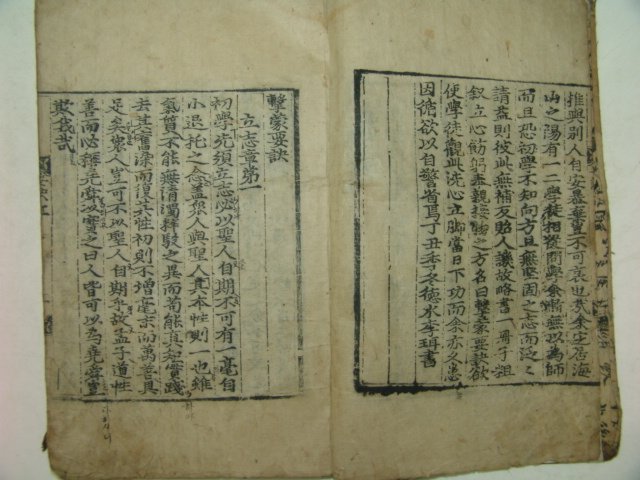 推與別人自安暴棄豈不可哀也哉余定居海
山之陽有一二學徒相從問學余慚無以爲師
而且恐初學不知向方且無堅固之志而泛々
請益則彼此無補反貽人譏故略書一冊子粗
叙立心飭躬奉親接物之方名曰擊蒙要訣欲
使學徒觀此洗心立脚當日下功而余亦久患
因循欲以自警省焉丁丑季冬德水李珥書
擊蒙要訣
立志章第一
初學先須立志必以聖人自期不可有一毫自
小退托之念盖衆人與聖人其本性則一也雖
氣質不能無淸濁粹駁之異而苟能眞知實踐
去其舊染而復其性初則不增毫末而萬善具
足矣衆人豈可不以聖人自期乎故孟子道性
善而必稱堯舜以實之曰人皆可以爲堯舜豈
欺我哉